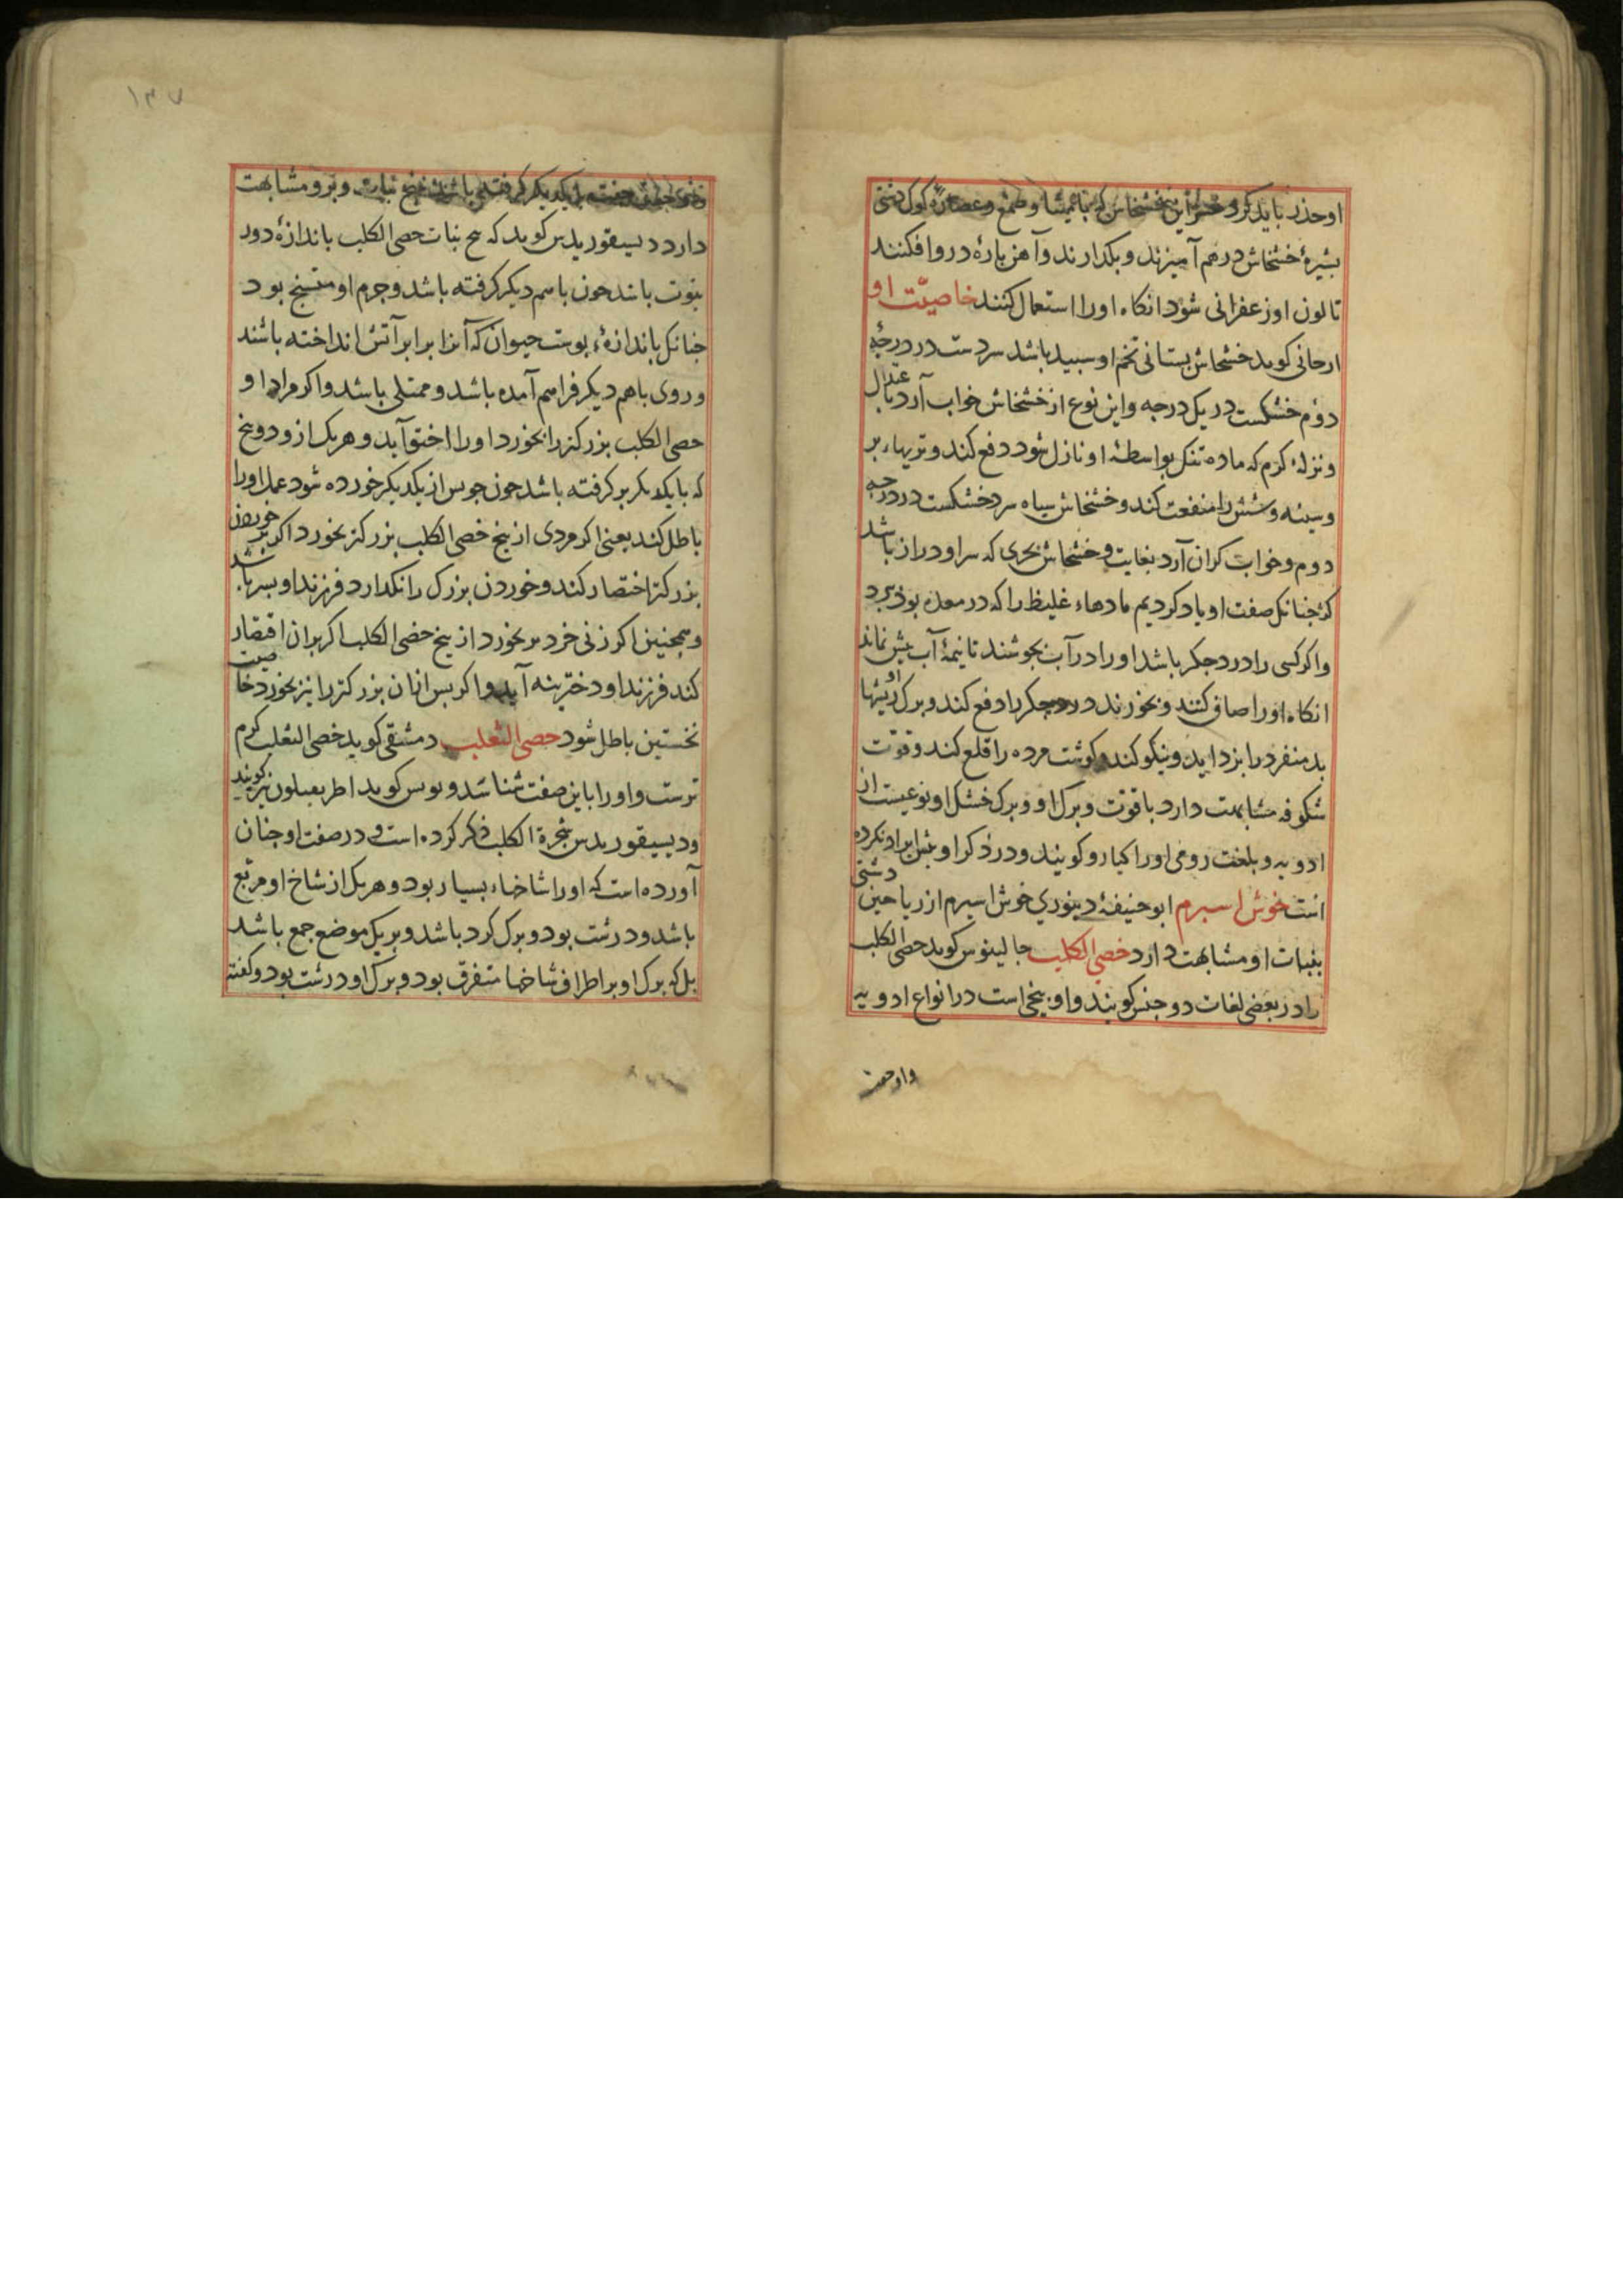 او حذر باید کرد و خواین خشخاش که با ممیشا و طمغ و عصاره کوک دشتی
بشیرهٔ خشخاش درهم آمیزند و بکدارند و آهن بارهٔ در وافکنند
تا لون او زعفرانی شود انکاه اورا استعمال کنند خاصیّت او
ارجانی کوید خشخاش بستانی تخم او سبید باشد سردست در درجهٔ
دوم خشکست در یک درجه واین نوع از خشخاش خواب آرد باعتدال
ونزلهٔ کرم که ماده تنک بواسطهٔ او نازل شود دفع کند و تریهاء بر
وسینه وشش را منفعت کند وخشخاش سیاه سرد خشکست در درجه
دوم وخواب کران آرد بغایت وخشخاش بحری که سر او دراز باشد
کژ جنانک صفت او یاد کردیم مادهاء غلیظ را که در معده بود ببرد
واکر کسی را درد جکر باشد اورا در آب بجوشند تا نیمهٔ آب بیش نماند
انکاه اورا صافی کنند و بخورند درد جکر را دفع کند و برک او ریشها
بد منفرد را بزداید و نیکو کند و کوشت مرده را قلع کند و قوّت
شکوفه مشابهت دارد با قوّت و برک او و برک خشک او نوعیست از
ادویه و بلغت رومی اورا کبارو کویند و در ذکر او بیش ایراد نکرده
است خوش اسبرم ابو حنیفهٔ دینوری خوش اسبرم از ریاحین دشتی
بنبات او مشابهت دارد خصی الکلب جالینوس کوید خصی الکلب
را در بعضی لغات دوجنس کویند و او بیخی است در انواع ادویه
واوجفت
۱۳۷
جفت با یکدیکر کرفته باشد بیخ نبات و برو مشابهت
دارد دیسیقوریدس کوید که بیخ نبات خصی الکلب باندازهٔ دور
بنوت باشد جون باهم دیکر کرفته باشد و جرم او متشنج بود
جنانک باندازهٔ بوست حیوان که آنرا برابر آتش انداخته باشند
و روی باهم دیکر فراهم آمده باشد و ممتلی باشد واکر مراد او
خصی الکلب بزرکتر را بخورد اورا اختو آید و هر یک ازو دو بیخ
که با یکدیکر بر کرفته باشد جون جو بس از یکدیکر خورده شود عمل اورا
باطل کند یعنی اکر مردی از بیخ خصی الکلب بزرکتر بخورد اکر بر خوردن
بزرکتر اختصار کند وخوردن بزرک را نکدارد فرزند او بسر باشد
وهمجنین اکر زنی خردتر بخورد از بیخ خصی الکلب اکر بران اقتصار
کند فرزند او دخترینه آید واکر بس ازان بزرکتر را نیز بخورد خاصیت
نخستین باطل شود خصی الثعلب دمشقی کوید خصی الثعلب کرم
ترست و اورا باین صفت شناسند و بولس کوید اطربفیلون نیز کویند
ودیسیقوریدس شجرة الکلب ذکر کرده است و در صفت او جنان
آورده است که اورا شاخهاء بسیار بود و هر یک از شاخ او مربّع
باشد و درشت بود و برک کرد باشد و بر یک موضع جمع باشد
بل که برک او بر اطراف شاخها متفرق بود و برک او درشت بود و کفته